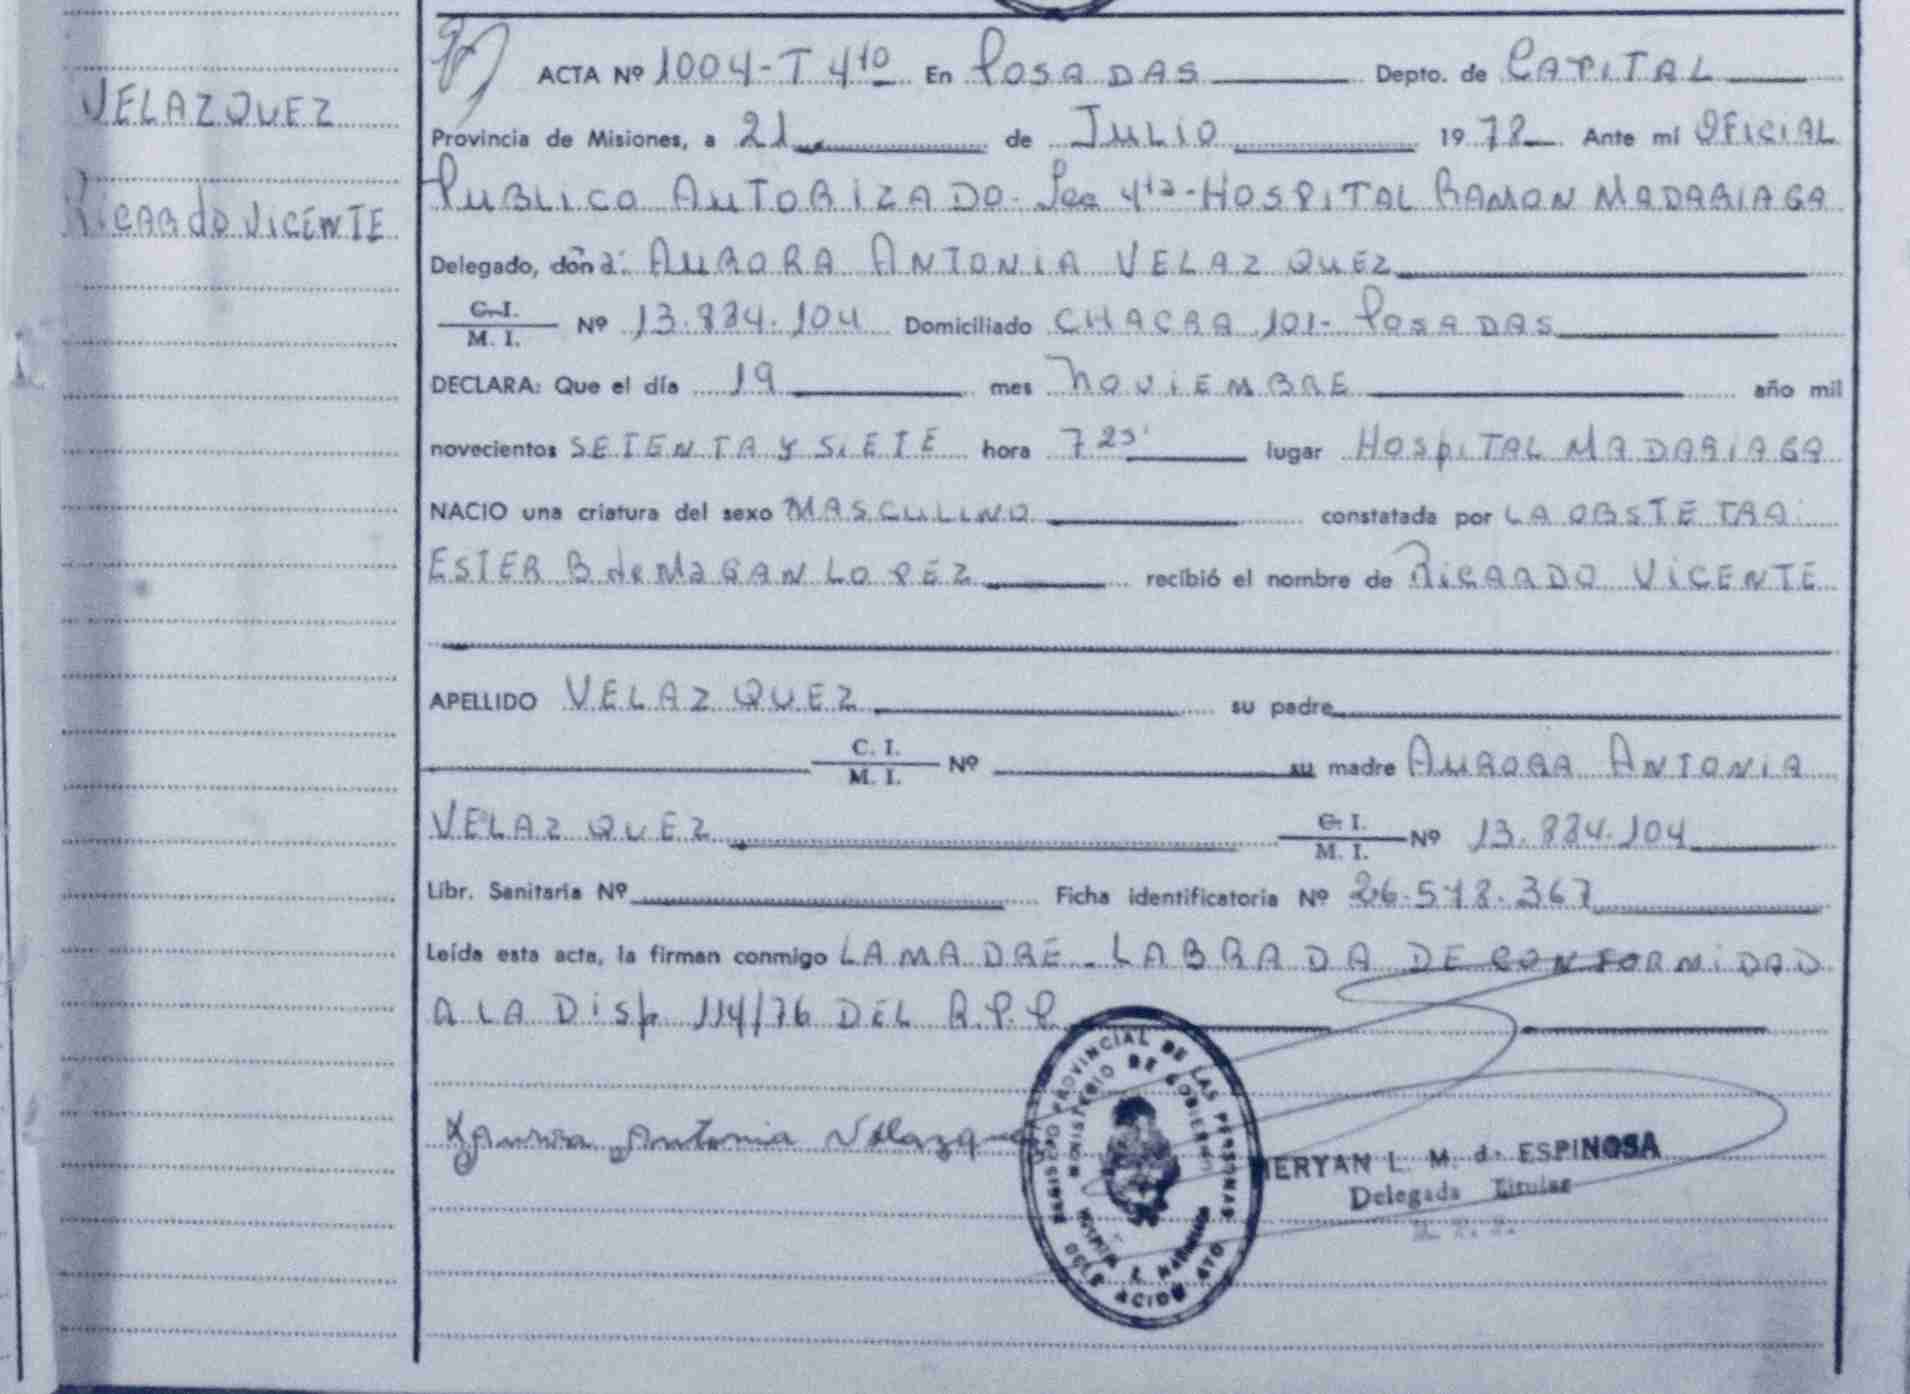 VELAZQUEZ
RICARDO VICENTE
ACTA Nº 1004-T 4to En POSADAS Depto. de CAPITAL
Provincia de Misiones, a 21 de JULIO 1978 Ante mí OFICIAL
PUBLICO AUTORIZADO- Sec 4ta-HOSPITAL RAMON MADARIAGA
Delegado, doña: AURORA ANTONIA VELAZQUEZ
C.I.
M. I. Nº 13.884.104 Domiciliado CHACRA 101- POSADAS
DECLARA: Que el día 19 mes NOVIEMBRE año mil
novecientos SETENTA Y SIETE hora 7 25' lugar HOSPITAL MADARIAGA
NACIO una criatura del sexo MASCULINO constatada por LA OBSTETRA
ESTER B de MAGAN LOPEZ recibió el nombre de RICARDO VICENTE
APELLIDO VELAZQUEZ su padre
C. I.
M. I. Nº su madre AURORA ANTONIA
VELAZQUEZ C. I.
M. I. Nº 13.884.104
Libr. Sanitaria Nº Ficha identificatoria Nº 26.578.367
Leída esta acta, la firman conmigo LA MADRE - LABRADA DE CONFORMIDAD
A LA DISP 114/76 DEL R.P.P.
Aurora Antonia Velazquez
REGISTRO PROVINCIAL DE LAS PERSONAS
MINISTERIO DE GOBIERNO
DELEGACION 4TO
MERYAN L. M. de ESPINOSA
Delegada Titular